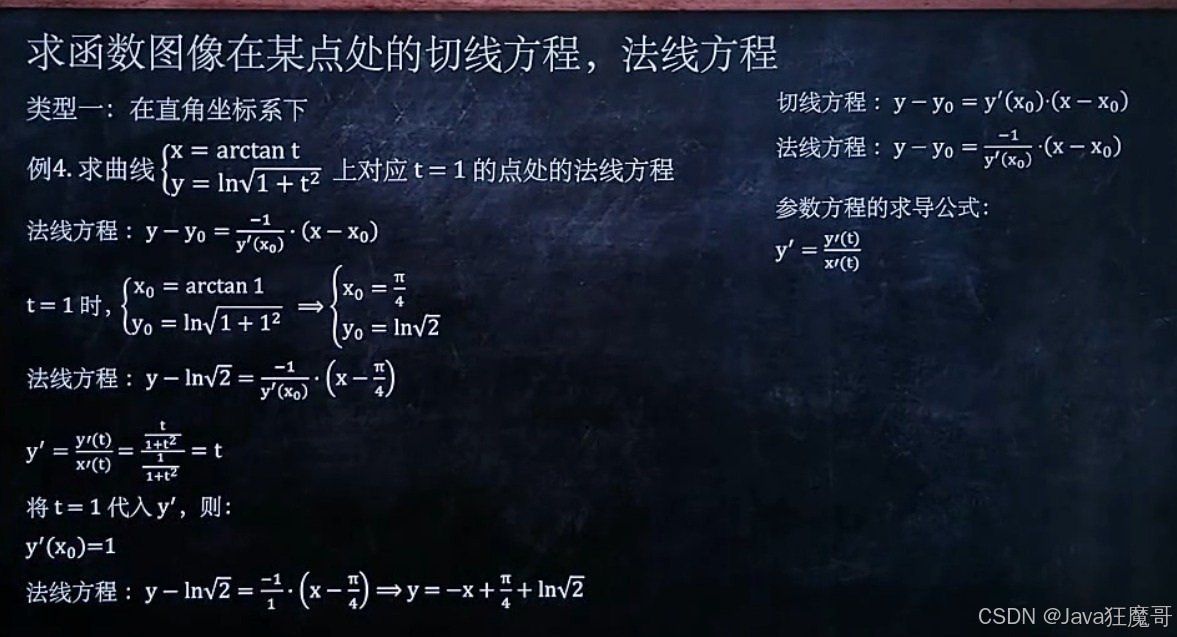 求函数图像在某点处的切线方程，法线方程
类型一：在直角坐标系下
例4. 求曲线 {x = arctan t, y = ln√(1 + t²) 上对应 t = 1 的点处的法线方程
法线方程：y − y₀ = −1/y′(x₀) · (x − x₀)
t = 1 时，{x₀ = arctan 1, y₀ = ln√(1 + 1²) ⟹ {x₀ = π/4, y₀ = ln√2
法线方程：y − ln√2 = −1/y′(x₀) · (x − π/4)
y′ = y′(t)/x′(t) = (t/(1+t²))/(1/(1+t²)) = t
将 t = 1 代入 y′，则：
y′(x₀)=1
法线方程：y − ln√2 = −1/1 · (x − π/4) ⟹ y = −x + π/4 + ln√2
切线方程：y − y₀ = y′(x₀)·(x − x₀)
法线方程：y − y₀ = −1/y′(x₀) ·(x − x₀)
参数方程的求导公式：
y′ = y′(t)/x′(t)
CSDN @Java狂魔哥